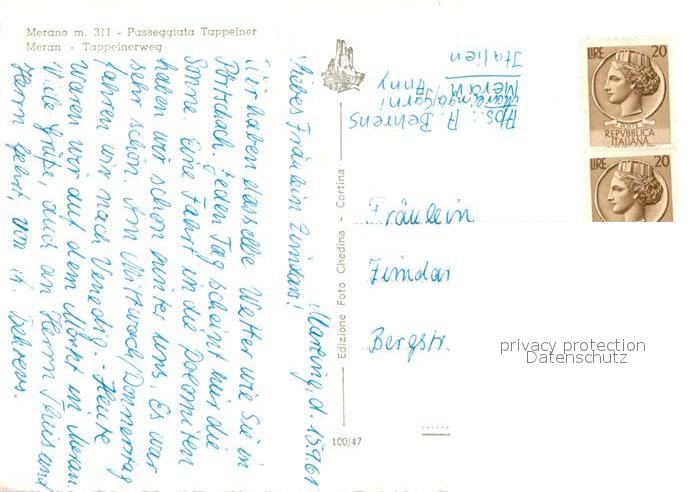 Merano m. 311 - Passeggiata Tappeiner
Meran - Tappeinerweg
Marling, d. 15.9.61
Liebes Fräulein Zimdar!
Wir haben dasselbe Wetter wie Sie in
Jeden Tag scheint hier die
Sonne. Eine Fahrt in die Dolomiten
haben wir schon hinter uns. Es war
sehr schön. Am Mittwoch/Donnerstag
fahren wir nach Venedig. - Heute
waren wir auf dem Markt in Meran.
Viele Grüße, auch an Herrn und
Herrn von H. Behrens.
Edizione Foto Ghedina - Cortina
100/47
Abs.: A. Behrens
Garni
Meran
Italien
LIRE 20
POSTE
REPVBBLICA
ITALIANA
LIRE 20
Fräulein
Zimdar
Bergstr.
privacy protection
Datenschutz